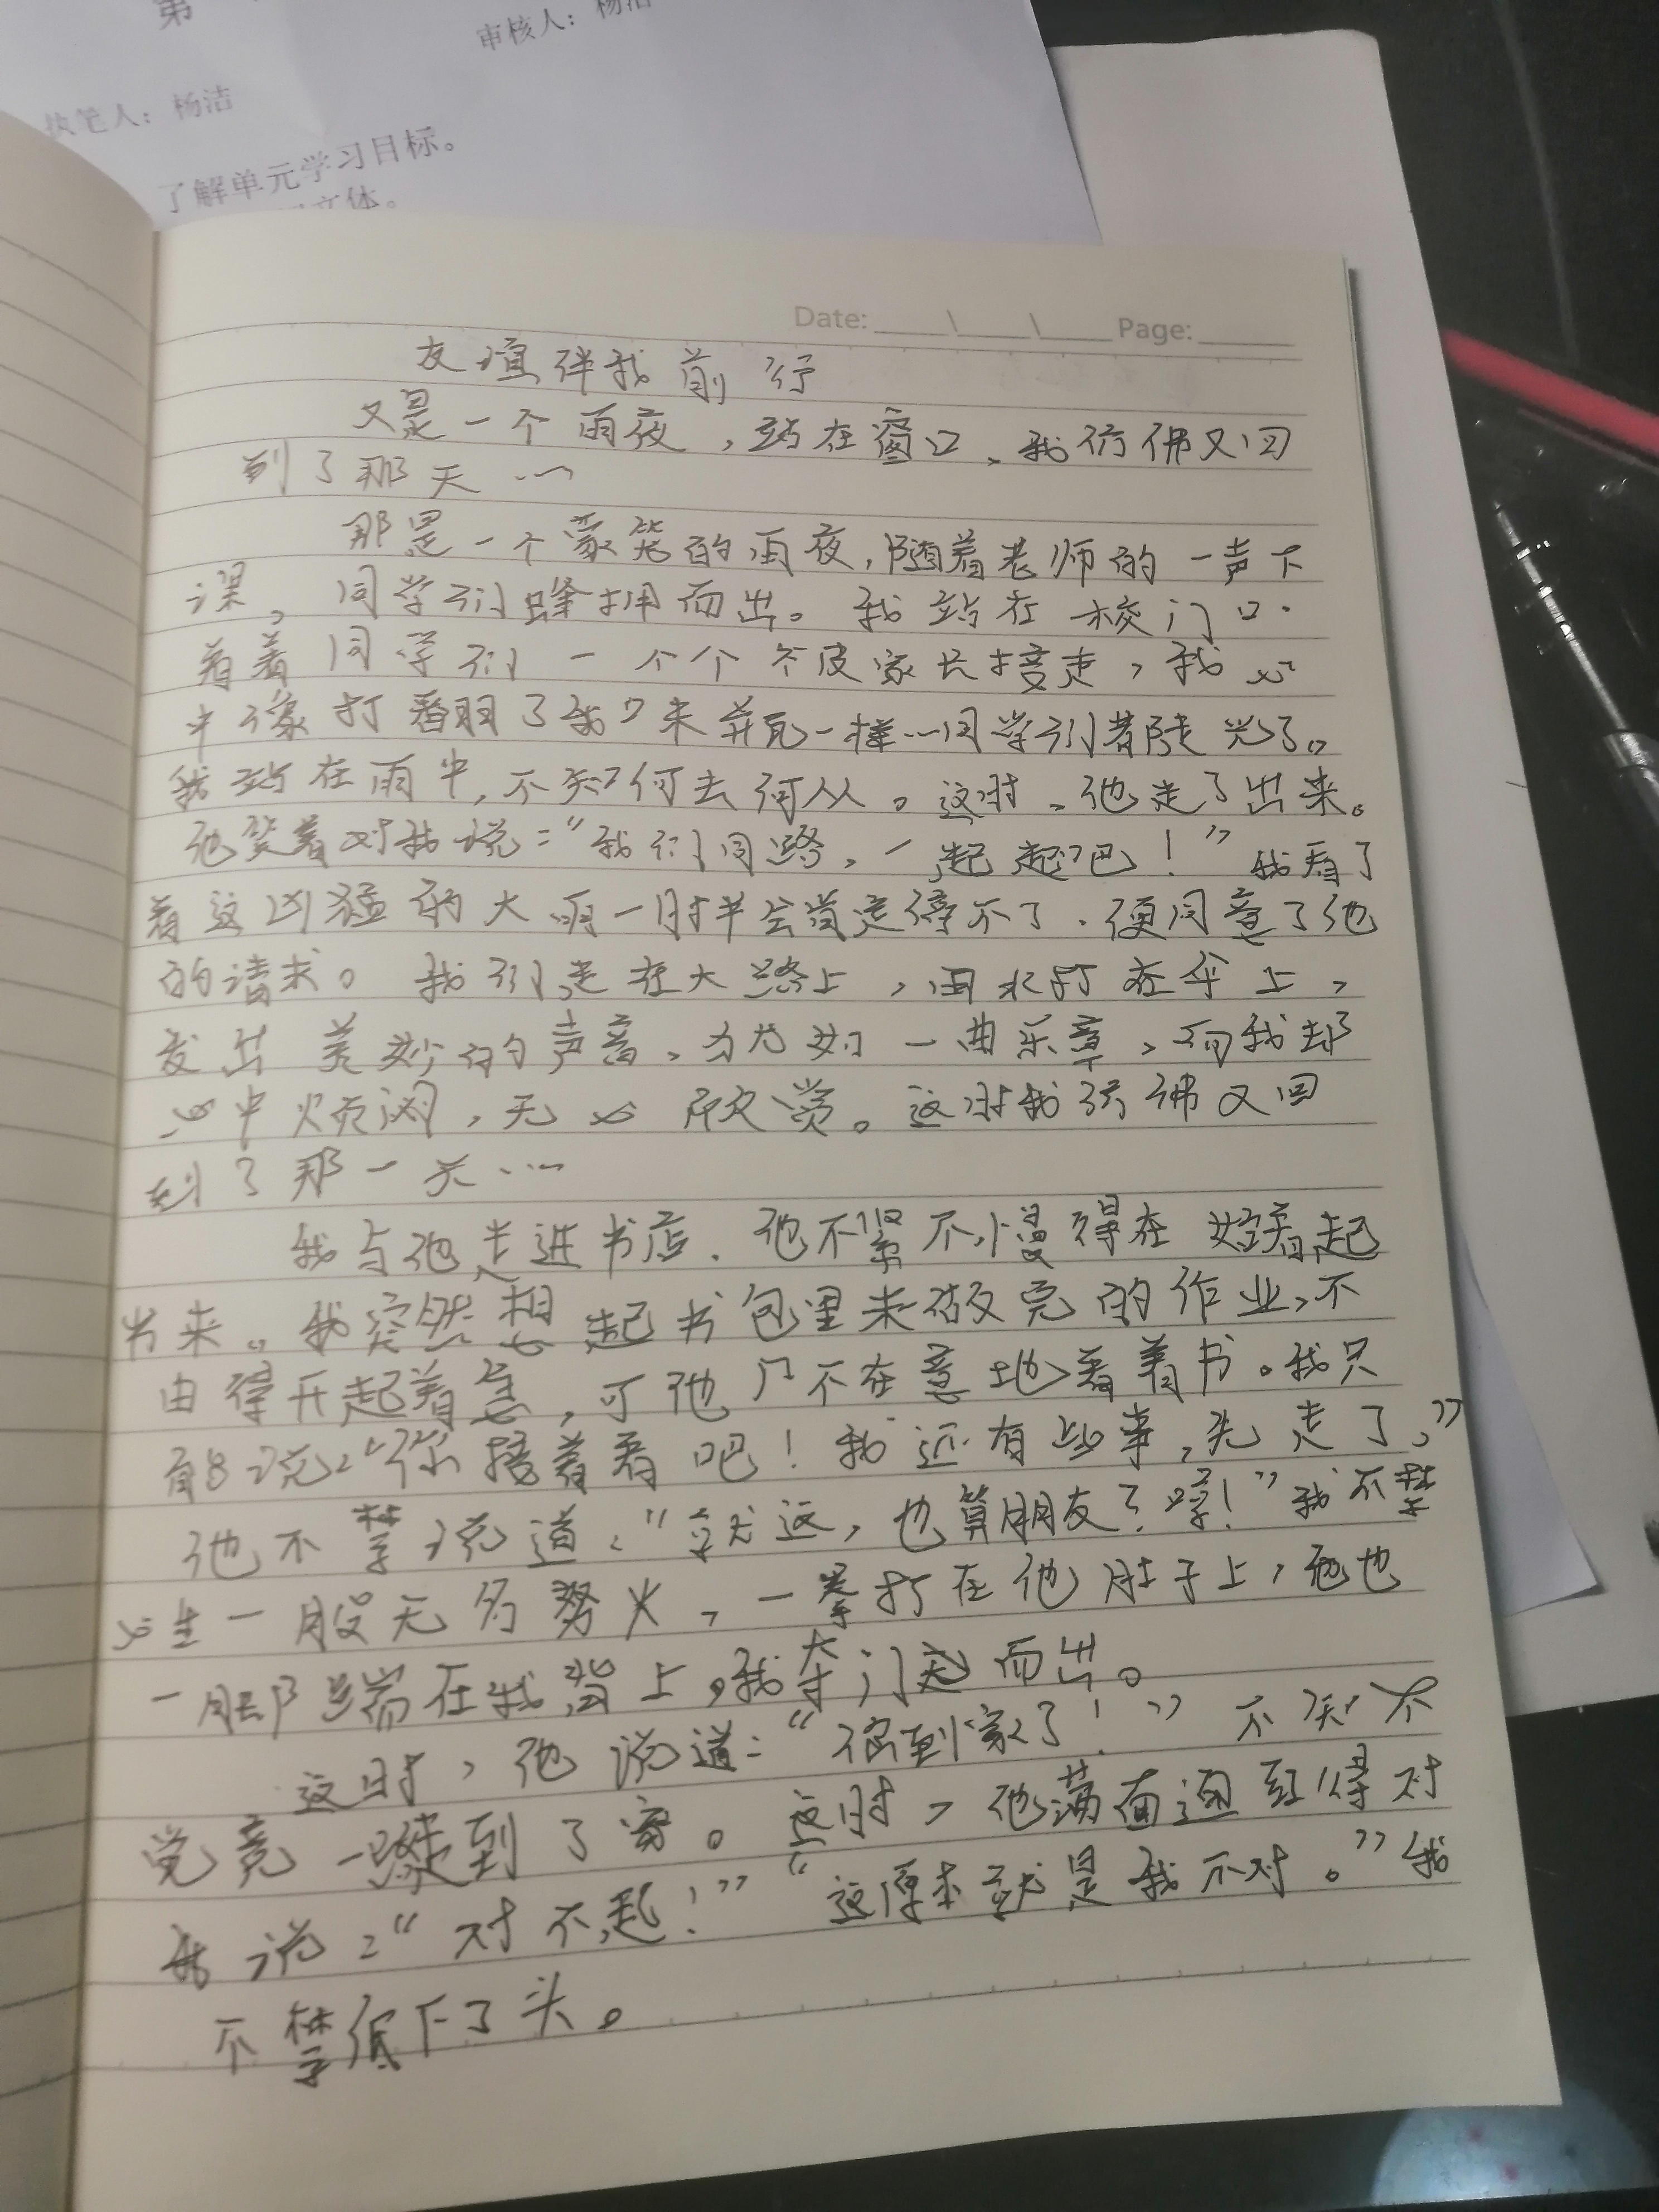 第
审核人：杨洁
执笔人：杨洁
了解单元学习目标。
文体。
Date: ____\____\____ Page: ____
友谊伴我前行
又是一个雨夜，站在窗口、我仿佛又回
到了那天…
那是一个蒙笼的雨夜，随着老师的一声下
课，同学们蜂拥而出。我站在校门口.
着着同学们一个个个被家长接走，我心
中像打翻了 一样…同学们者走光了。
我站在雨中，不知何去何从。这时，他走了出来。
他笑着对我说："我们同路，一起走吧！"我看了
着这凶猛的大雨一时半会肯定停不了.便同意了他
的请求。我们走在大路上，雨水打在伞上，
发出美妙的声音、尤如一曲乐章、而我却
心中烦闷，无心欣赏。这时我仿佛又回
到了那一天…
我与他走进书店.他不紧不慢得在 着起
书来。我突然想起书包里未做完的作业，不
由得开起着急，可他 不在意地着着书。我只
能说："你接着着吧！我还有些事，先走了，"
他不禁说道："就这，也算朋友？哼！"我不禁
心生一股无名努火，一拳打在他肚子上，他也
一脚踹在我背上，我夺门走而出。
这时，他说道："你到家了！"不知不
觉竟 到了家。这时，他满面通红得对
我说："对不起！""这原本就是我不对。"我
不禁低下了头。